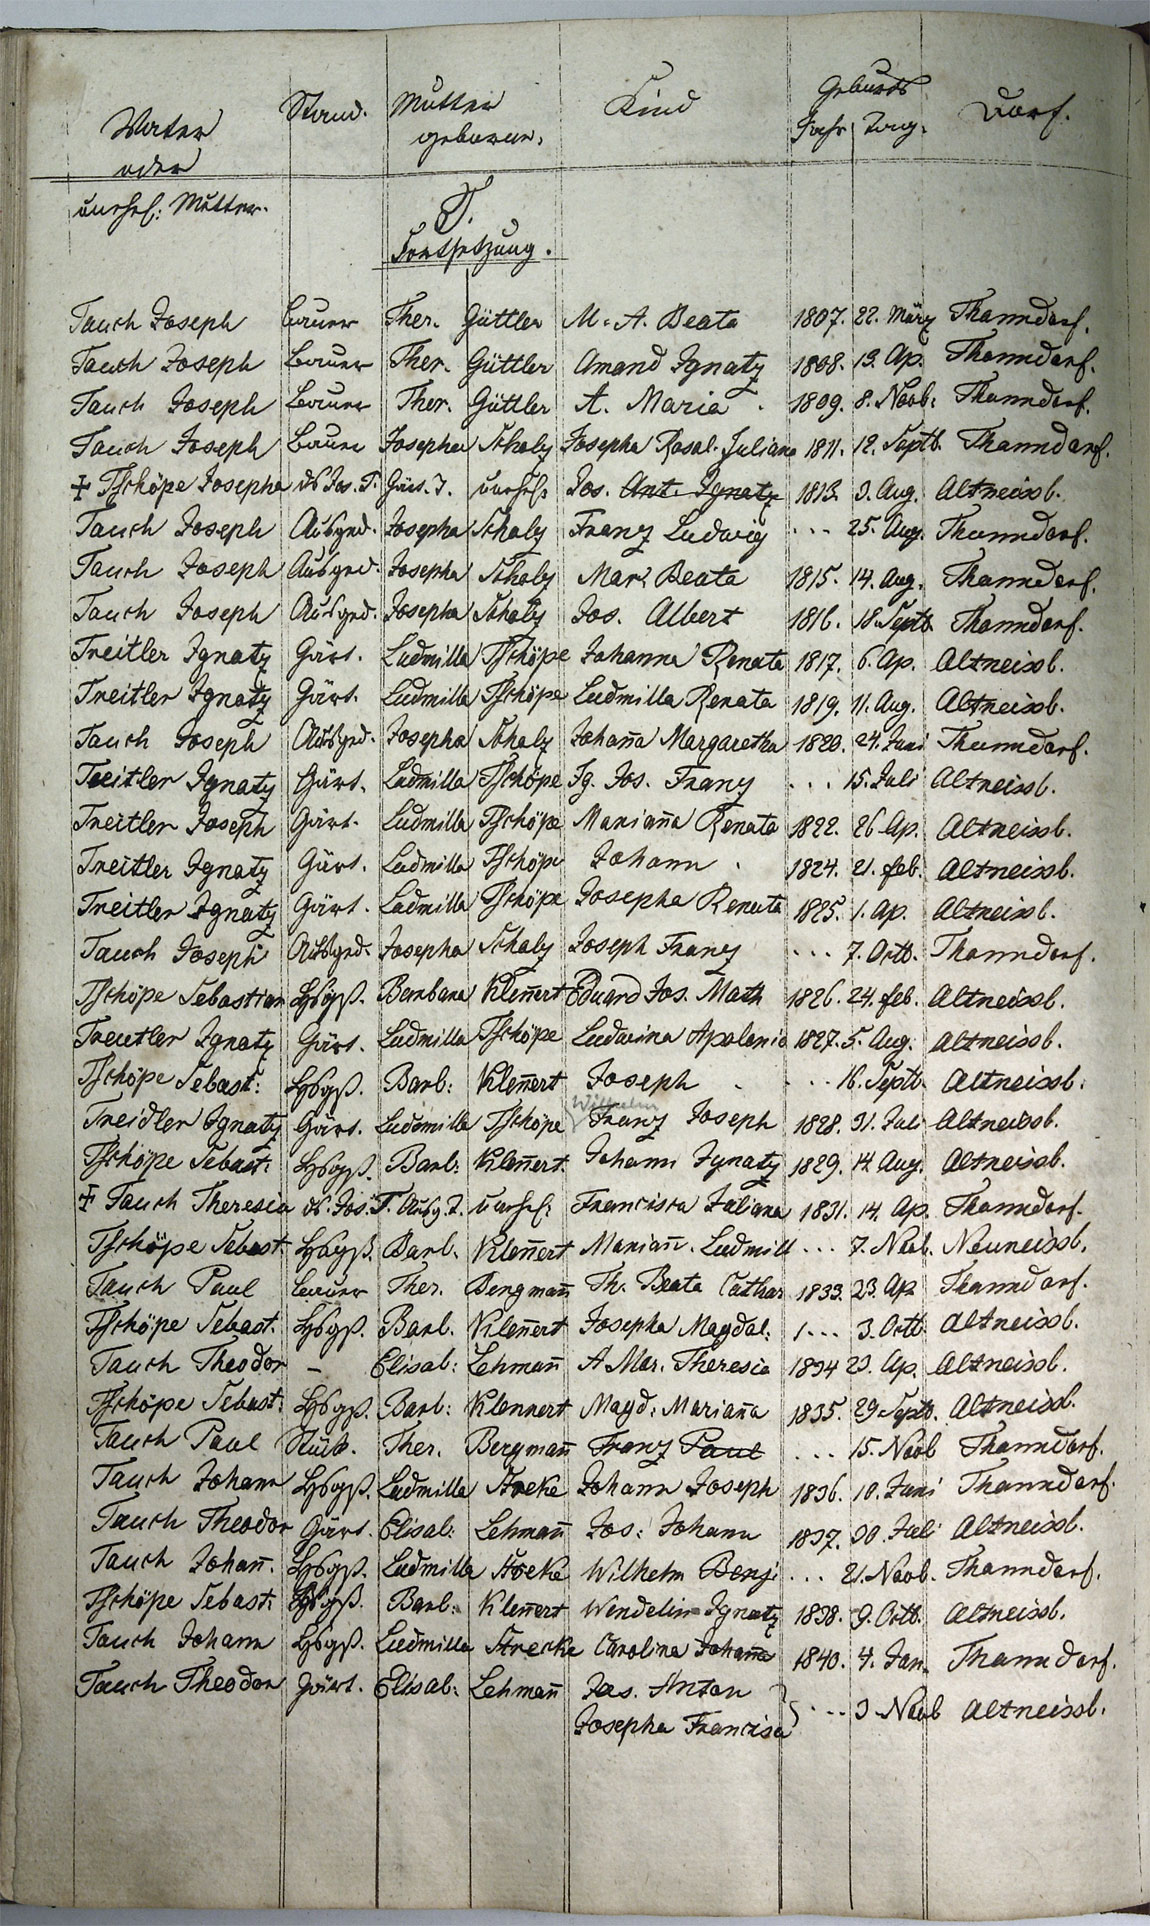 Vater Stand. Mutter Kind Geburts Dorf.
oder geborne. Jahr Tag.
unehel: Mutter.
T.
Fortsetzung.
Tauch Joseph Bauer Ther. Güttler M. A. Beata 1807. 22. März Thanndorf.
Tauch Joseph Bauer Ther. Güttler Amand Ignatz 1808. 13. Ap. Thanndorf.
Tauch Joseph Bauer Ther. Güttler A. Maria 1809. 8. Novb: Thanndorf.
Tauch Joseph Bauer Josepha Scholz Josepha Rosal. Juliana 1811. 12. Septb. Thanndorf.
+ Tschöpe Josepha ds Jos. T. Gärt. T. unehel: Jos. Ant. Ignatz 1813. 3. Aug. Altneissb.
Tauch Joseph Ausged. Josepha Scholz Franz Ludwig ... 25. Aug. Thanndorf.
Tauch Joseph Ausged. Josepha Scholz Mar. Beata 1815. 14. Aug. Thanndorf.
Tauch Joseph Ausged. Josepha Scholz Jos. Albert 1816. 18. Septb. Thanndorf.
Treitler Ignatz Gärt. Ludmilla Tschöpe Johanna Renata 1817. 6. Ap. Altneissb.
Treitler Ignatz Gärt. Ludmilla Tschöpe Ludmilla Renata 1819. 11. Aug. Altneissb.
Tauch Joseph Ausged. Josepha Scholz Johan̄a Margaretha 1820. 24. Juni Thanndorf.
Treitler Ignatz Gärt. Ludmilla Tschöpe Ig. Jos. Franz ... 15. Juli Altneissb.
Treitler Joseph Gärt. Ludmilla Tschöpe Marian̄a Renata 1822. 26 Ap. Altneissb.
Treitler Ignatz Gärt. Ludmilla Tschöpe Johann 1824. 21. feb. Altneissb.
Treitler Ignatz Gärt. Ludmilla Tschöpe Josepha Renata 1825. 1. Ap. Altneissb.
Tauch Joseph Ausged. Josepha Scholz Joseph Franz ... 7. Octb. Thanndorf.
Tschöpe Sebastian Hsbgß. Barbara Klen̄ert Eduard Jos. Math 1826. 24. feb. Altneissb.
Treutler Ignatz Gärt. Ludmilla Tschöpe Ludwina Apolonia 1827. 5. Aug. Altneissb.
Tschöpe Sebast: Hsbgß. Barb: Klen̄ert Joseph ... 16. Septb. Altneissb.
Wilhelm
Treidler Ignatz Gärt. Ludmilla Tschöpe Franz Joseph 1828. 31. Juli Altneissb.
Tschöpe Sebast: Hsbgß. Barb: Klen̄ert. Johann Ignatz 1829. 14. Aug. Altneissb.
+ Tauch Theresia ds. Jos. T. Ausg. T. unehel: Francisca Juliana 1831. 14. Ap. Thanndorf.
Tschöpe Sebast. Hsbgß. Barb. Klen̄ert Marian̄. Ludmill ... 7. Novb. Neuneissb.
Tauch Paul Bauer Ther. Bergman̄ Th. Beata Cathar 1833. 23. Ap. Thanndorf.
Tschöpe Sebast. Hsbgß. Barb. Klen̄ert Josepha Magdal: ... 3. Octb Altneissb.
Tauch Theodor – Elisab: Lehman̄ A Mar. Theresia 1834 23. Ap. Altneissb.
Tschöpe Sebast: Hsbgß. Barb: Klennert Magd: Marian̄a 1835. 29. Septb. Altneissb.
Tauch Paul Ther. Bergman̄ Franz Paul ... 15. Novb Thanndorf.
Tauch Johann Hsbgß. Ludmilla Johann Joseph 1836. 10. Juni Thanndorf.
Tauch Theodor Gärt. Elisab: Lehman̄ Jos: Johann 1837. 30. Juli Altneissb.
Tauch Johan̄. Hsbgß. Ludmilla Wilhelm Benj ... 21. Novb. Thanndorf.
Tschöpe Sebast: Hsbgß. Barb: Klen̄ert Wendelin Ignatz 1838. 9. Octb. Altneissb.
Tauch Johann Hsbgß. Ludmilla Strecke Carolina Johan̄a 1840. 4. Jan. Thanndorf.
Tauch Theodor Gärt. Elisab: Lehman̄ Jos. Anton
Josepha Francisca ... 3 Novb Altneissb.